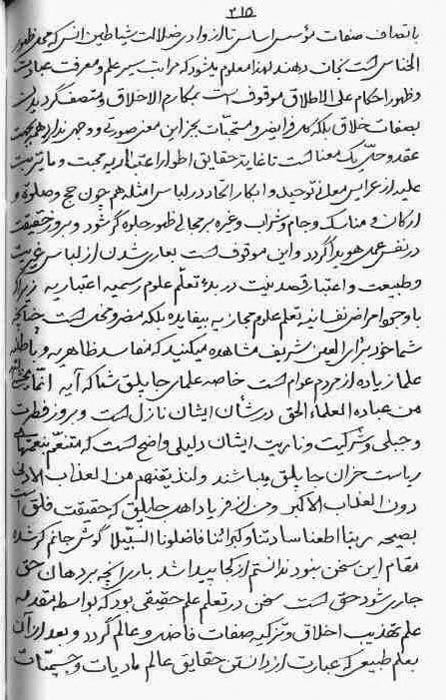 ٢١٥
باتصاف صفات مؤسس اساس تا از وادی ضلالت شیاطین انس که محل ظهور
الخناس است نجات دهند لهذا معلوم میشود که مراتب سیر علم و معرفت عبادت
وظهور احکام علی الاطلاق موقوف است بمکارم الاخلاق و متصف گردیدن
بصفات خلاق بلکه کل فرایض و مستحبات بجز این معنی صورتی و وجهی ندارد
عقد و حل یک معنا است تا غایة حقایق اطوار اعتباریه محبت و ما
علیه از عرایس معانی توحید و ابکار اتحاد در لباس امثله هم چون حج وصلوة و
ارکان و مناسک و جام و شراب و غره بر مجالی ظهور جلوه گر شود و بروز حقیقت
در نفس عمل هویدا گردد و این موقوف است بعاری شدن از لباس
وطبیعت و اعتبار قصد نیت در بدء تعلم علوم رسمیه اعتباریه زیرا که
با وجود امراض نفسانیه تعلم علوم مجازیه بیفایده بلکه مضر و مخل است چنانچه
شما خود برای العین شریف مشاهده میکنید که مفاسد ظاهریه و باطنیه
علما زیاده از مردم عوام است خاصه علمای جابلق شما که آیه انما یخشی
من عباده العلماء الحق در شأن ایشان نازل است و بروز فطرت
و جبلی و شرکیت و ناریت ایشان دلیلی واضح است که متنعم بنعمتهای
ریاست خران جابلق میباشند ولنذیقنهم من العذاب الادنی
دون العذاب الاکبر و من از فریاد اهل جابلق که حقیقت فلق است
بصیحه ربنا اطعنا سادتنا و کبرائنا فاضلونا السبیلا گوش جانم کر شده
مقام این سخن نبود ندانستم از کجا پیدا شد باری آنچه بر دهان حق
جاری شود حق است سخن در تعلم علم حقیقی بود که بواسطه مقدمه
علم تهذیب اخلاق و تزکیه صفات فاضل و عالم گردد و بعد از آن
بعلم طبیعی که عبارت از دانستن حقایق عالم مادیات و جسمانیات